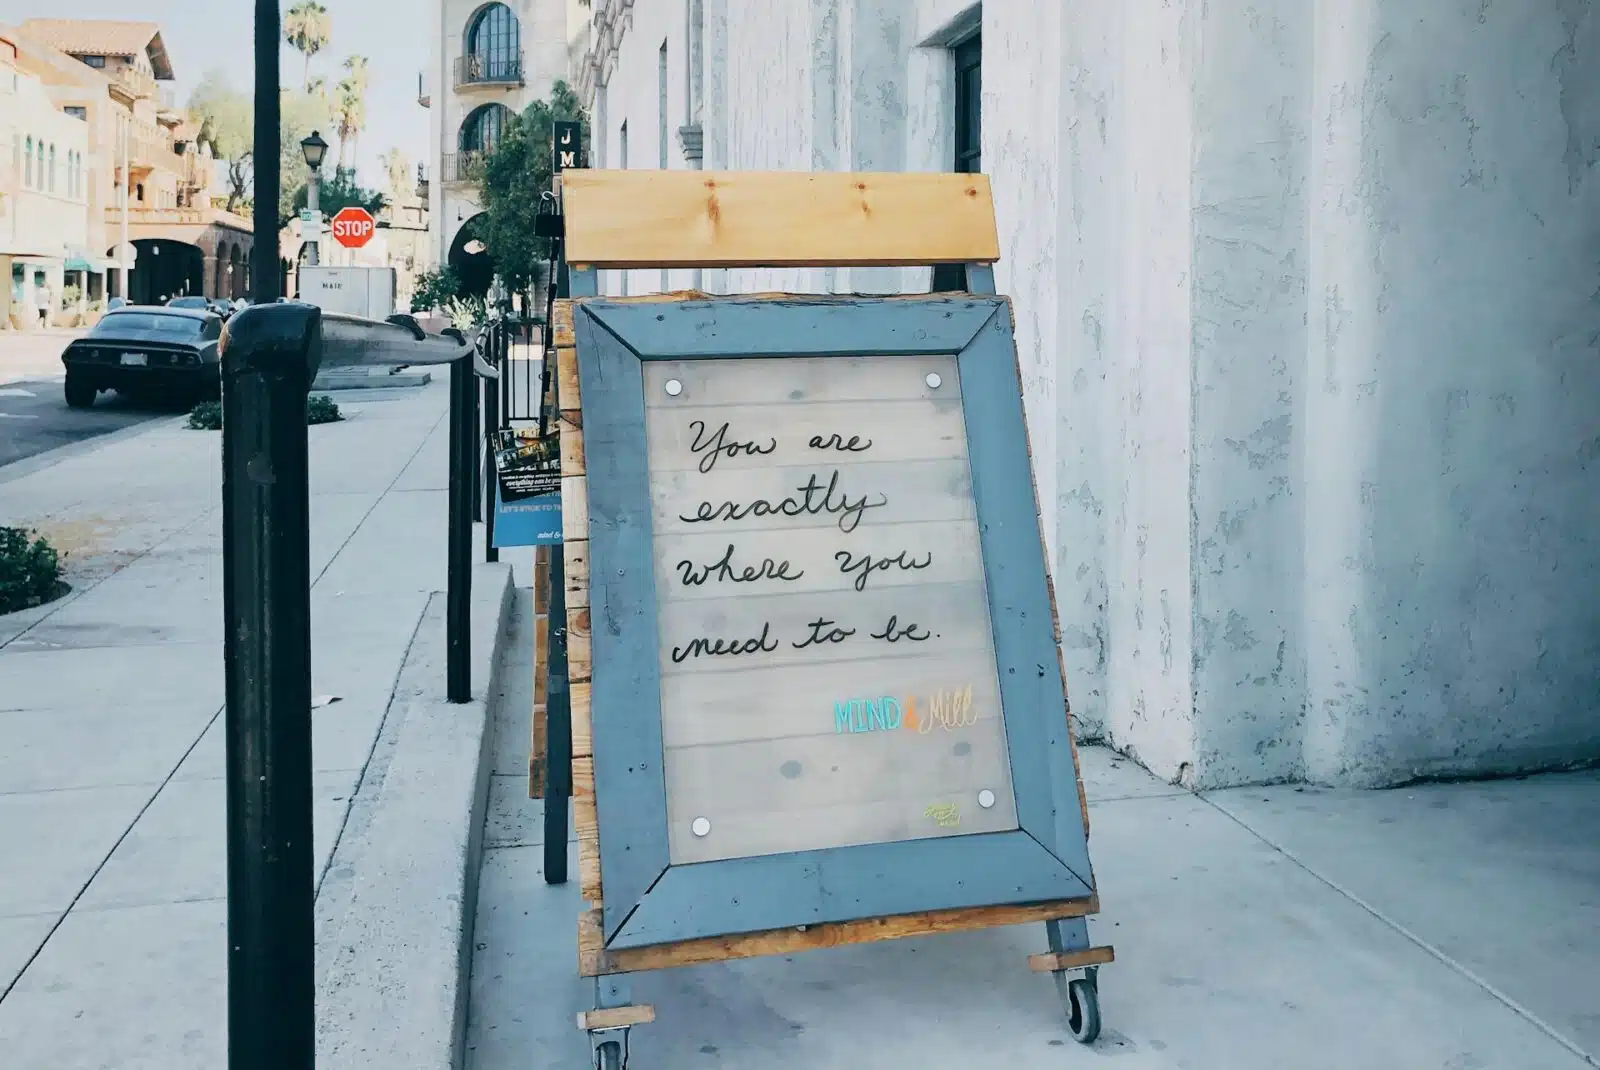 J
M
STOP
You are
exactly
where you
need to be.
MIND & Mill
everything can be you
LET'S STICK TO TH
mind &